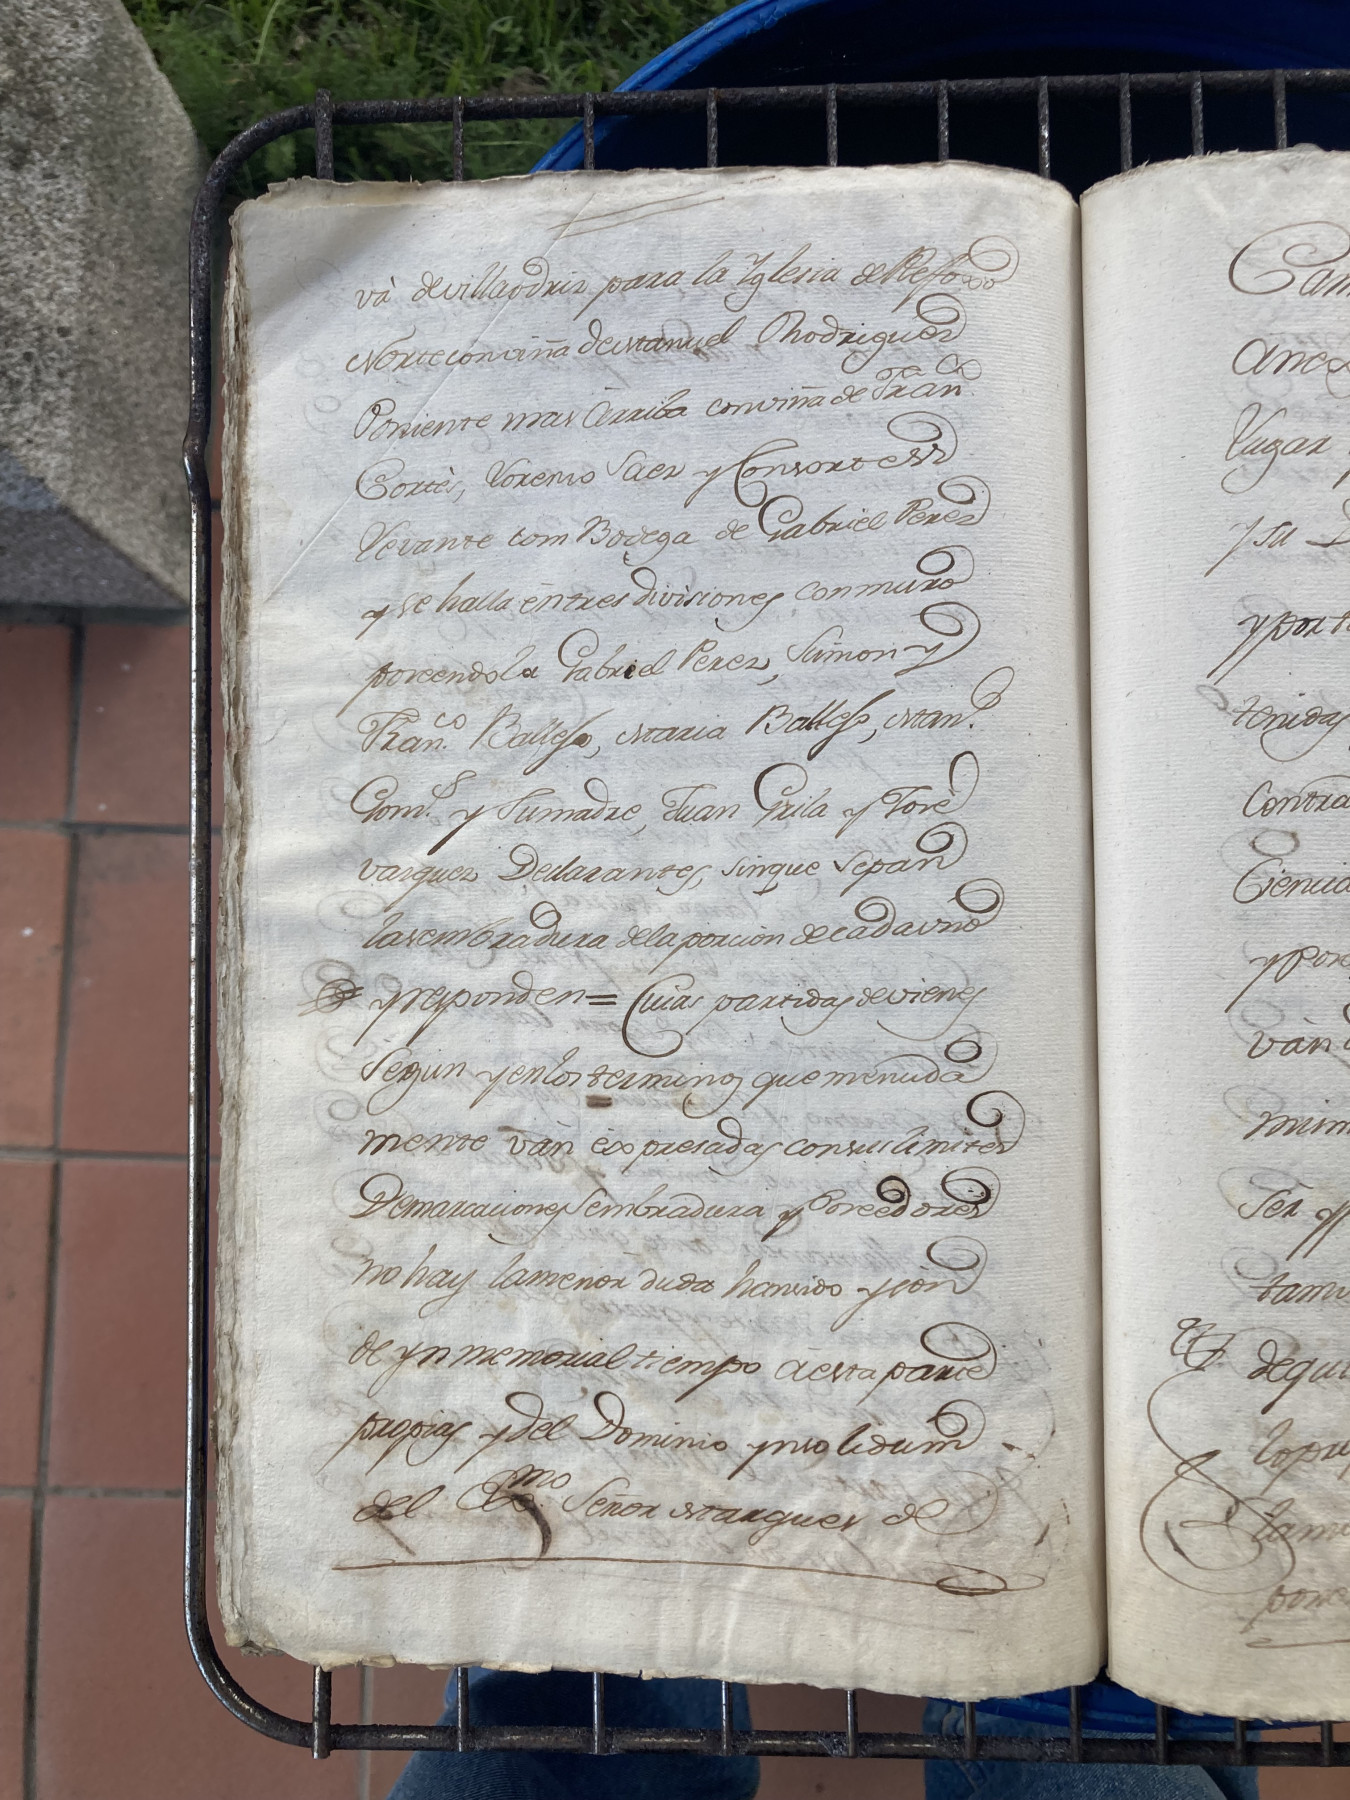 và de villaodriz para la Yglesia de Refoxo
Norte con viña de Manuel Rhodriguez
Poniente mas àrriba con viña de Fran.co
Cortès, Lorenso Saez y Consortess
Levante com Bodega de Gabriel Perez
y se halla èntres divisiones con muro
poseendola Gabriel Perez, Simon y
Fran.co Ballesº, Maria Ballesº, Man.l
Gom.s y Sumadre, Juan Grila y Josè
vazquez Declarantes, sinque Sepan
lasembradura dela porcion decada vno
y responden = Cuias partidas de vienes
Segun y enlos terminos que menuda
mente vàn èxpresadas consus limites
Demarcaciones Sembradura y Poseedores
no hay lamenor duda hansido y són
de ynmemorial tiempo àesta parte
propias y del Dominio ynsolidum
del Exmo. Señor Marques de
Cam
anex
Lugar
y su D
y por t
tenidas
Contra
Ciencia
y Pose
vàn
mism
Ser
tamv
dequi
lopre
lame
pone